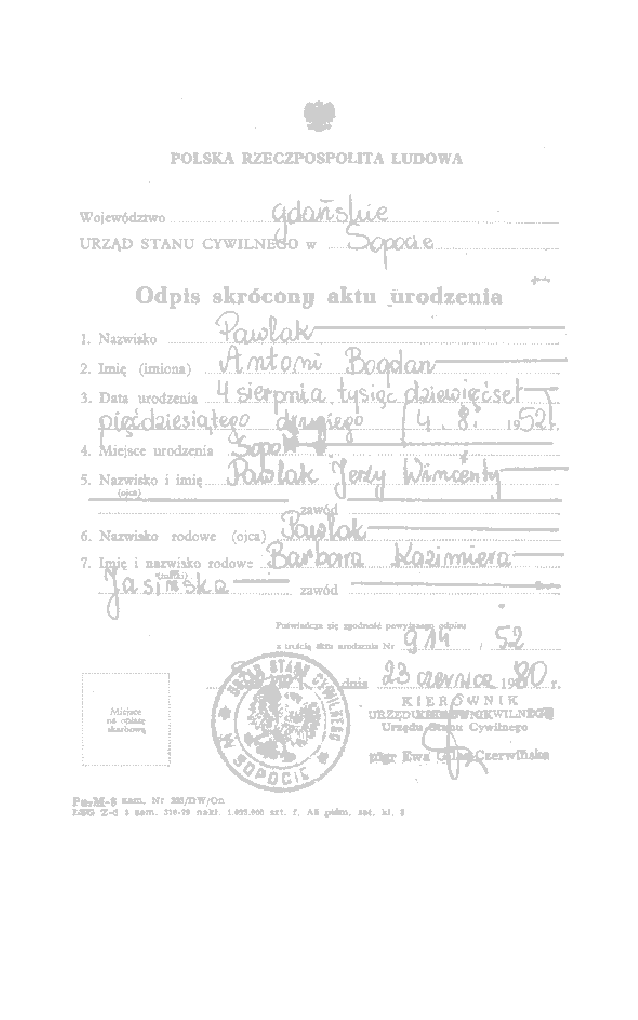 POLSKA RZECZPOSPOLITA LUDOWA
Województwo gdańskie
URZĄD STANU CYWILNEGO w Sopocie
Odpis skrócony aktu urodzenia
1. Nazwisko Pawlak
2. Imię (imiona) Antoni Bogdan
3. Data urodzenia 4 sierpnia tysiąc dziewięćset
pięćdziesiątego drugiego (4. 8. 1952 r.
4. Miejsce urodzenia Sopot
5. Nazwisko i imię Pawlak Jerzy Wincenty
(ojca)
zawód
6. Nazwisko rodowe (ojca) Pawlak
7. Imię i nazwisko rodowe Barbara Kazimiera
(matki)
Jasińska zawód
Poświadcza się zgodność powyższego odpisu
z treścią aktu urodzenia Nr 914 / 52
dnia 23 czerwca 1980 r.
Miejsce
na opłatę
skarbową
URZĄD STANU CYWILNEGO
W SOPOCIE
KIEROWNIK
Urzędu Stanu Cywilnego
mgr Ewa Czerwińska
Pu-M-5 zam. Nr